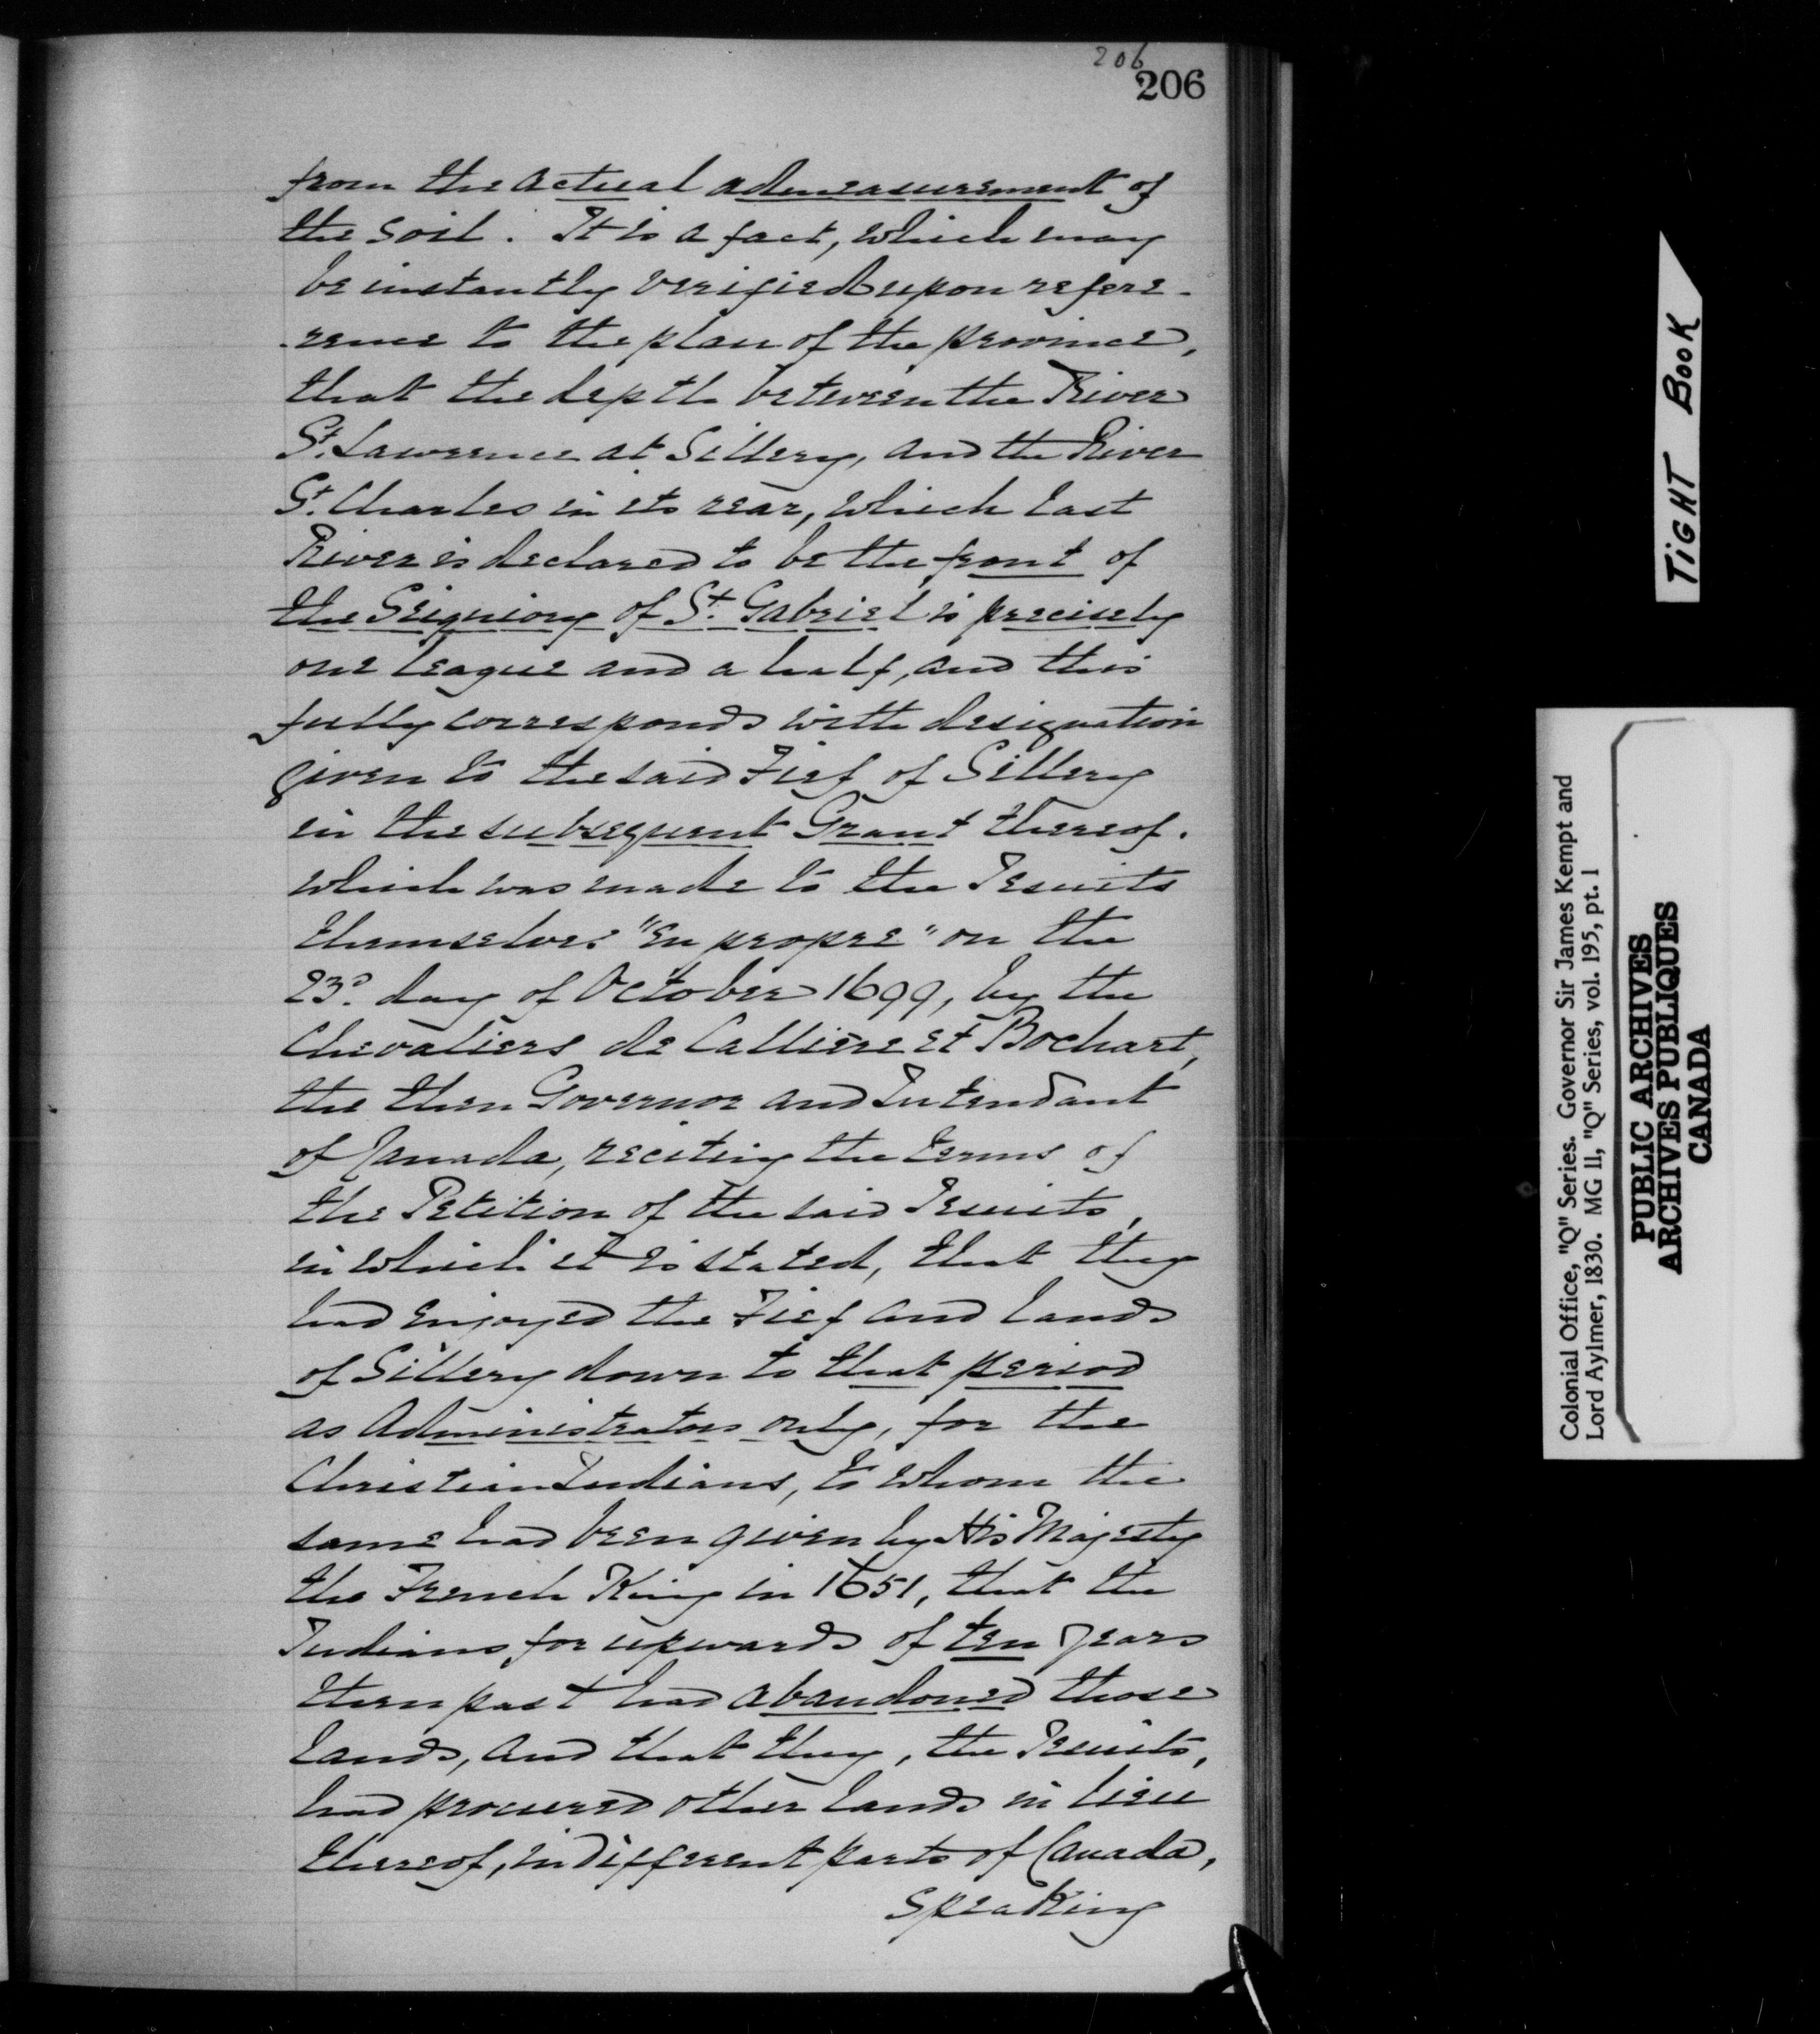 206
206
from the actual admeasurement of
the soil. It is a fact, which may
be instantly verified upon refere-
-rence to the plan of the province,
that the depth between the River
St. Lawrence at Sillery, and the River
St. Charles in its rear, which last
River is declared to be the front of
the Seigniory of St. Gabriel is precisely
one league and a half, and this
fully corresponds with designation
given to the said Fief of Sillery
in the subsequent Grant thereof.
which was made to the Jesuits
themselves "en propre" on the
23d. day of October 1699, by the
Chevaliers de Callière et Bochart,
the then Governor and Intendant
of Canada, reciting the terms of
the Petition of the said Jesuits,
in which it is stated, that they
had enjoyed the Fief and lands
of Sillery down to that period
as Administrators only, for the
Christian Indians, to whom the
same had been given by His Majesty
the French King in 1651, that the
Indians for upwards of ten years
then past had abandoned those
lands, and that they, the Jesuits,
had procured other lands in lieu
thereof, in different parts of Canada,
speaking
TIGHT BOOK
Colonial Office, "Q" Series. Governor Sir James Kempt and
Lord Aylmer, 1830. MG 11, "Q" Series, vol. 195, pt. 1
PUBLIC ARCHIVES
ARCHIVES PUBLIQUES
CANADA